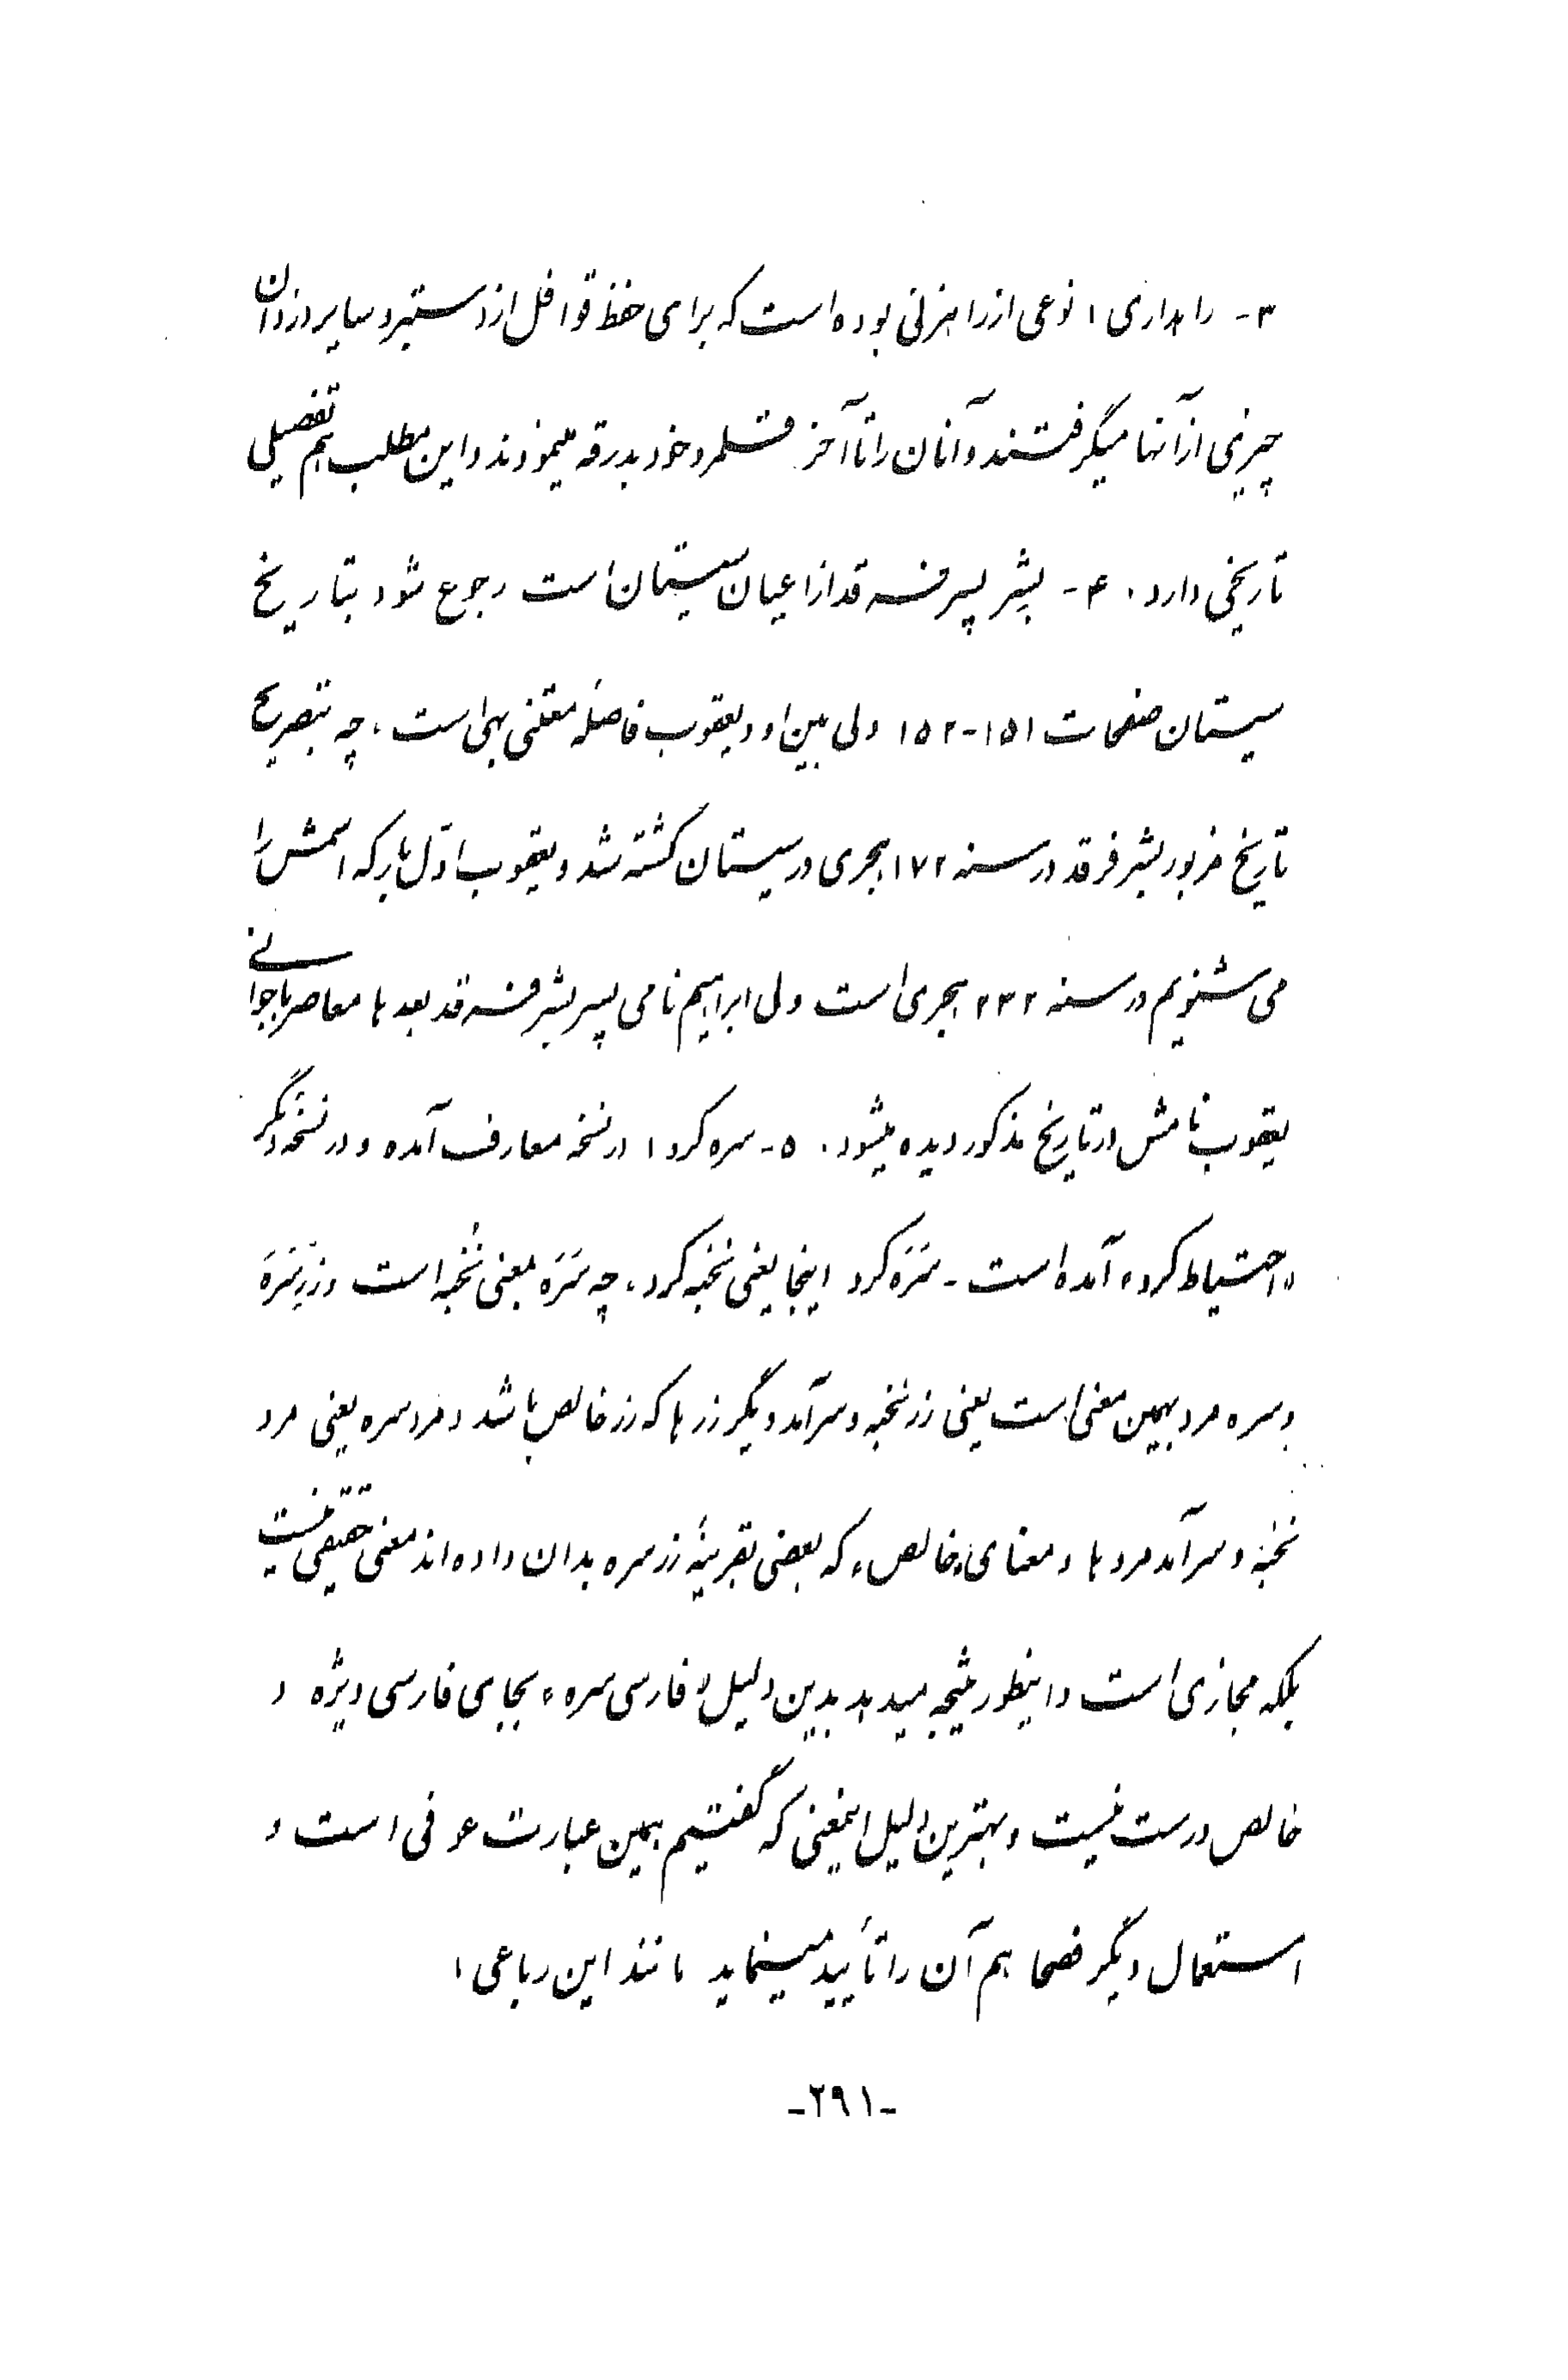 ۳- راهداری : نوعی از راهزنی بوده است که برای حفظ قوافل از دستبرد سایر دزدان
چیزی از آنها میگرفتند و آنان را تا آخر قلمرو خود بدرقه مینمودند و این مطلب هم تفصیلی
تاریخی دارد . ۴- بشر پسر فرقد از اعیان سیستان است رجوع شود بتاریخ
سیستان صفحات ۱۵۱-۱۵۲ ولی بین او و یعقوب فاصلهٔ معتنی بهی است ، چه بتصریح
تاریخ مزبور بشر فرقد در سنه ۱۷۲ هجری در سیستان کشته شد و یعقوب اوّل بار که اسمش را
می شنویم در سنه ۲۳۲ هجری است ولی ابراهیم نامی پسر بشر فرقد بعدها معاصر با جوانی
یعقوب نامش در تاریخ مذکور دیده میشود . ۵- سره کرد : در نسخه معارف آمده و در نسخهٔ دیگر
«احتیاط کرد» آمده است - سَرَه کرد اینجا یعنی نخبه کرد ، چه سَرَه بمعنی نُخبه است و زرِ سَرَه
و سره مرد بهمین معنی است یعنی زر نخبه و سرآمد دیگر زرها که زر خالص باشد و مرد سره یعنی مرد
نخبه و سرآمد مردها و معنای «خالص» که بعضی بقرینهٔ زر سره بدان داده اند معنی حقیقی نیست
بلکه مجازی است و اینطور نتیجه میدهد بدین دلیل «فارسی سره» بجای فارسی ویژه و
خالص درست نیست و بهترین دلیل اینمعنی که گفتیم همین عبارت عوفی است و
استعمال دیگر فصحا هم آن را تأیید مینماید مانند این رباعی :
-۲۹۱-